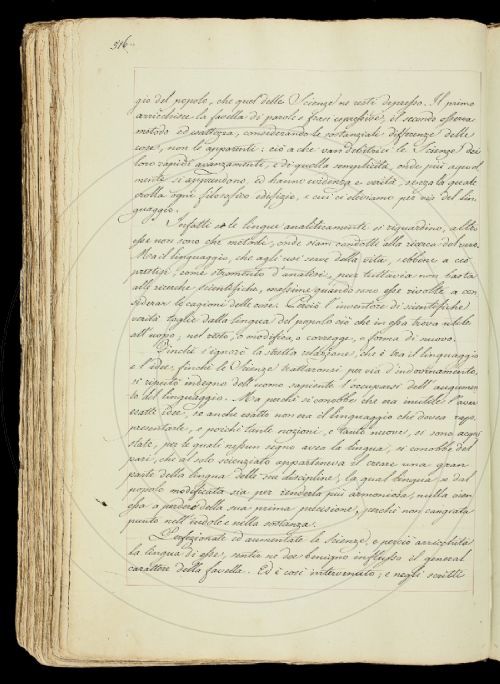 516.
gio del popolo, che quel delle Scienze ne resti depresso. Il primo
arricchisce la favella di parole e frasi espressive, il secondo osserva
metodo ed esattezza, considerando le sostanziali differenze delle
cose, non le apparenti: ciò a che van debitrici le Scienze dei
loro rapidi avanzamenti, e di quella semplicità, onde più agevol
mente si apprendono, ed hanno evidenza e verità, senza la quale
crolla ogni filosofico edifizio, a cui ci eleviamo per via del lin
guaggio.
Infatti se le lingue analiticamente si riguardino, altro
esse non sono che metodi, onde siam condotti alla ricerca del vero.
Ma il linguaggio, che agli usi serve della vita, sebbene a ciò
prestisi, come stromento d'analisi, pur tuttavia non basta
alle ricerche scientifiche, massime quando sono esse rivolte a con
siderar le cagioni delle cose. Perciò l'inventore di scientifiche
verità toglie dalla lingua del popolo ciò che in essa trova utile
all'uopo, nel resto, o modifica, o corregge, e forma di nuovo.
Finchè s'ignorò la stretta relazione, che è tra il linguaggio
e l'idee; finchè le Scienze trattaronsi per via d'indovinamento,
si reputò indegno dell'uomo sapiente l'occuparsi dell'argomen
to del linguaggio. Ma poichè si conobbe che era inutile l'aver
esatte idee, se anche esatto non era il linguaggio che dovea rap
presentarle, e poichè tante nozioni, e tanto nuove, si sono acqui
state, per le quali nessun segno avea la lingua, si conobbe del
pari, che al solo scienziato apparteneva il creare una gran
parte della lingua delle sue discipline, la qual lingua, se dal
popolo modificata sia per renderla più armoniosa, nulla vien
essa a perdere della sua prima precisione, perchè non cangiata
punto nell'indole e nella sostanza.
Perfezionate ed aumentate le Scienze, e perciò arricchita
la lingua di esse, sentir ne dee benigno influsso il general
carattere della favella. Ed è così intervenuto; e negli scritti